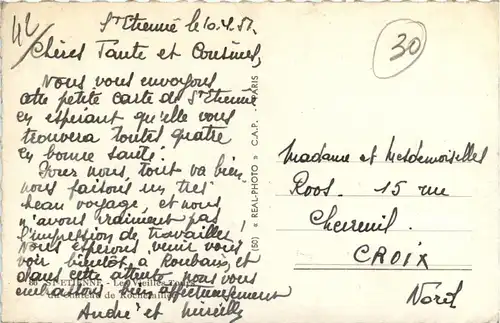 42
St Etienne le 10.4.51.
Chères Tante et Cousines,
Nous vous envoyons
cette petite carte de St Etienne
en espérant qu'elle vous
trouvera toutes quatre
en bonne santé.
Pour nous, tout va bien
nous faisons un très
beau voyage, et nous
n'avons vraiment pas
l'impression de travailler,
Nous espérons venir vous
voir bientôt à Roubaix, et
dans cette attente, nous vous
embrassons bien affectueusement
André et Mireille
86 ST-ETIENNE - Les Vieilles Tours
du Château de Rochetaillée
(50) « REAL-PHOTO » C.A.P. - PARIS
30
Madame et Mesdemoiselles
Roos. 15 rue
Chevreuil.
CROIX
Nord